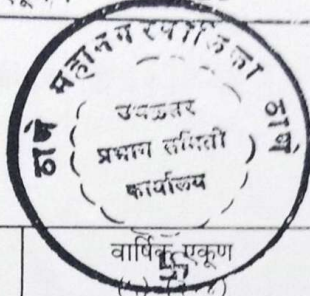 ठाणे महानगरपालिका ठाणे
उथळसर
प्रभाग समिती
कार्यालय
वार्षिक एकूण